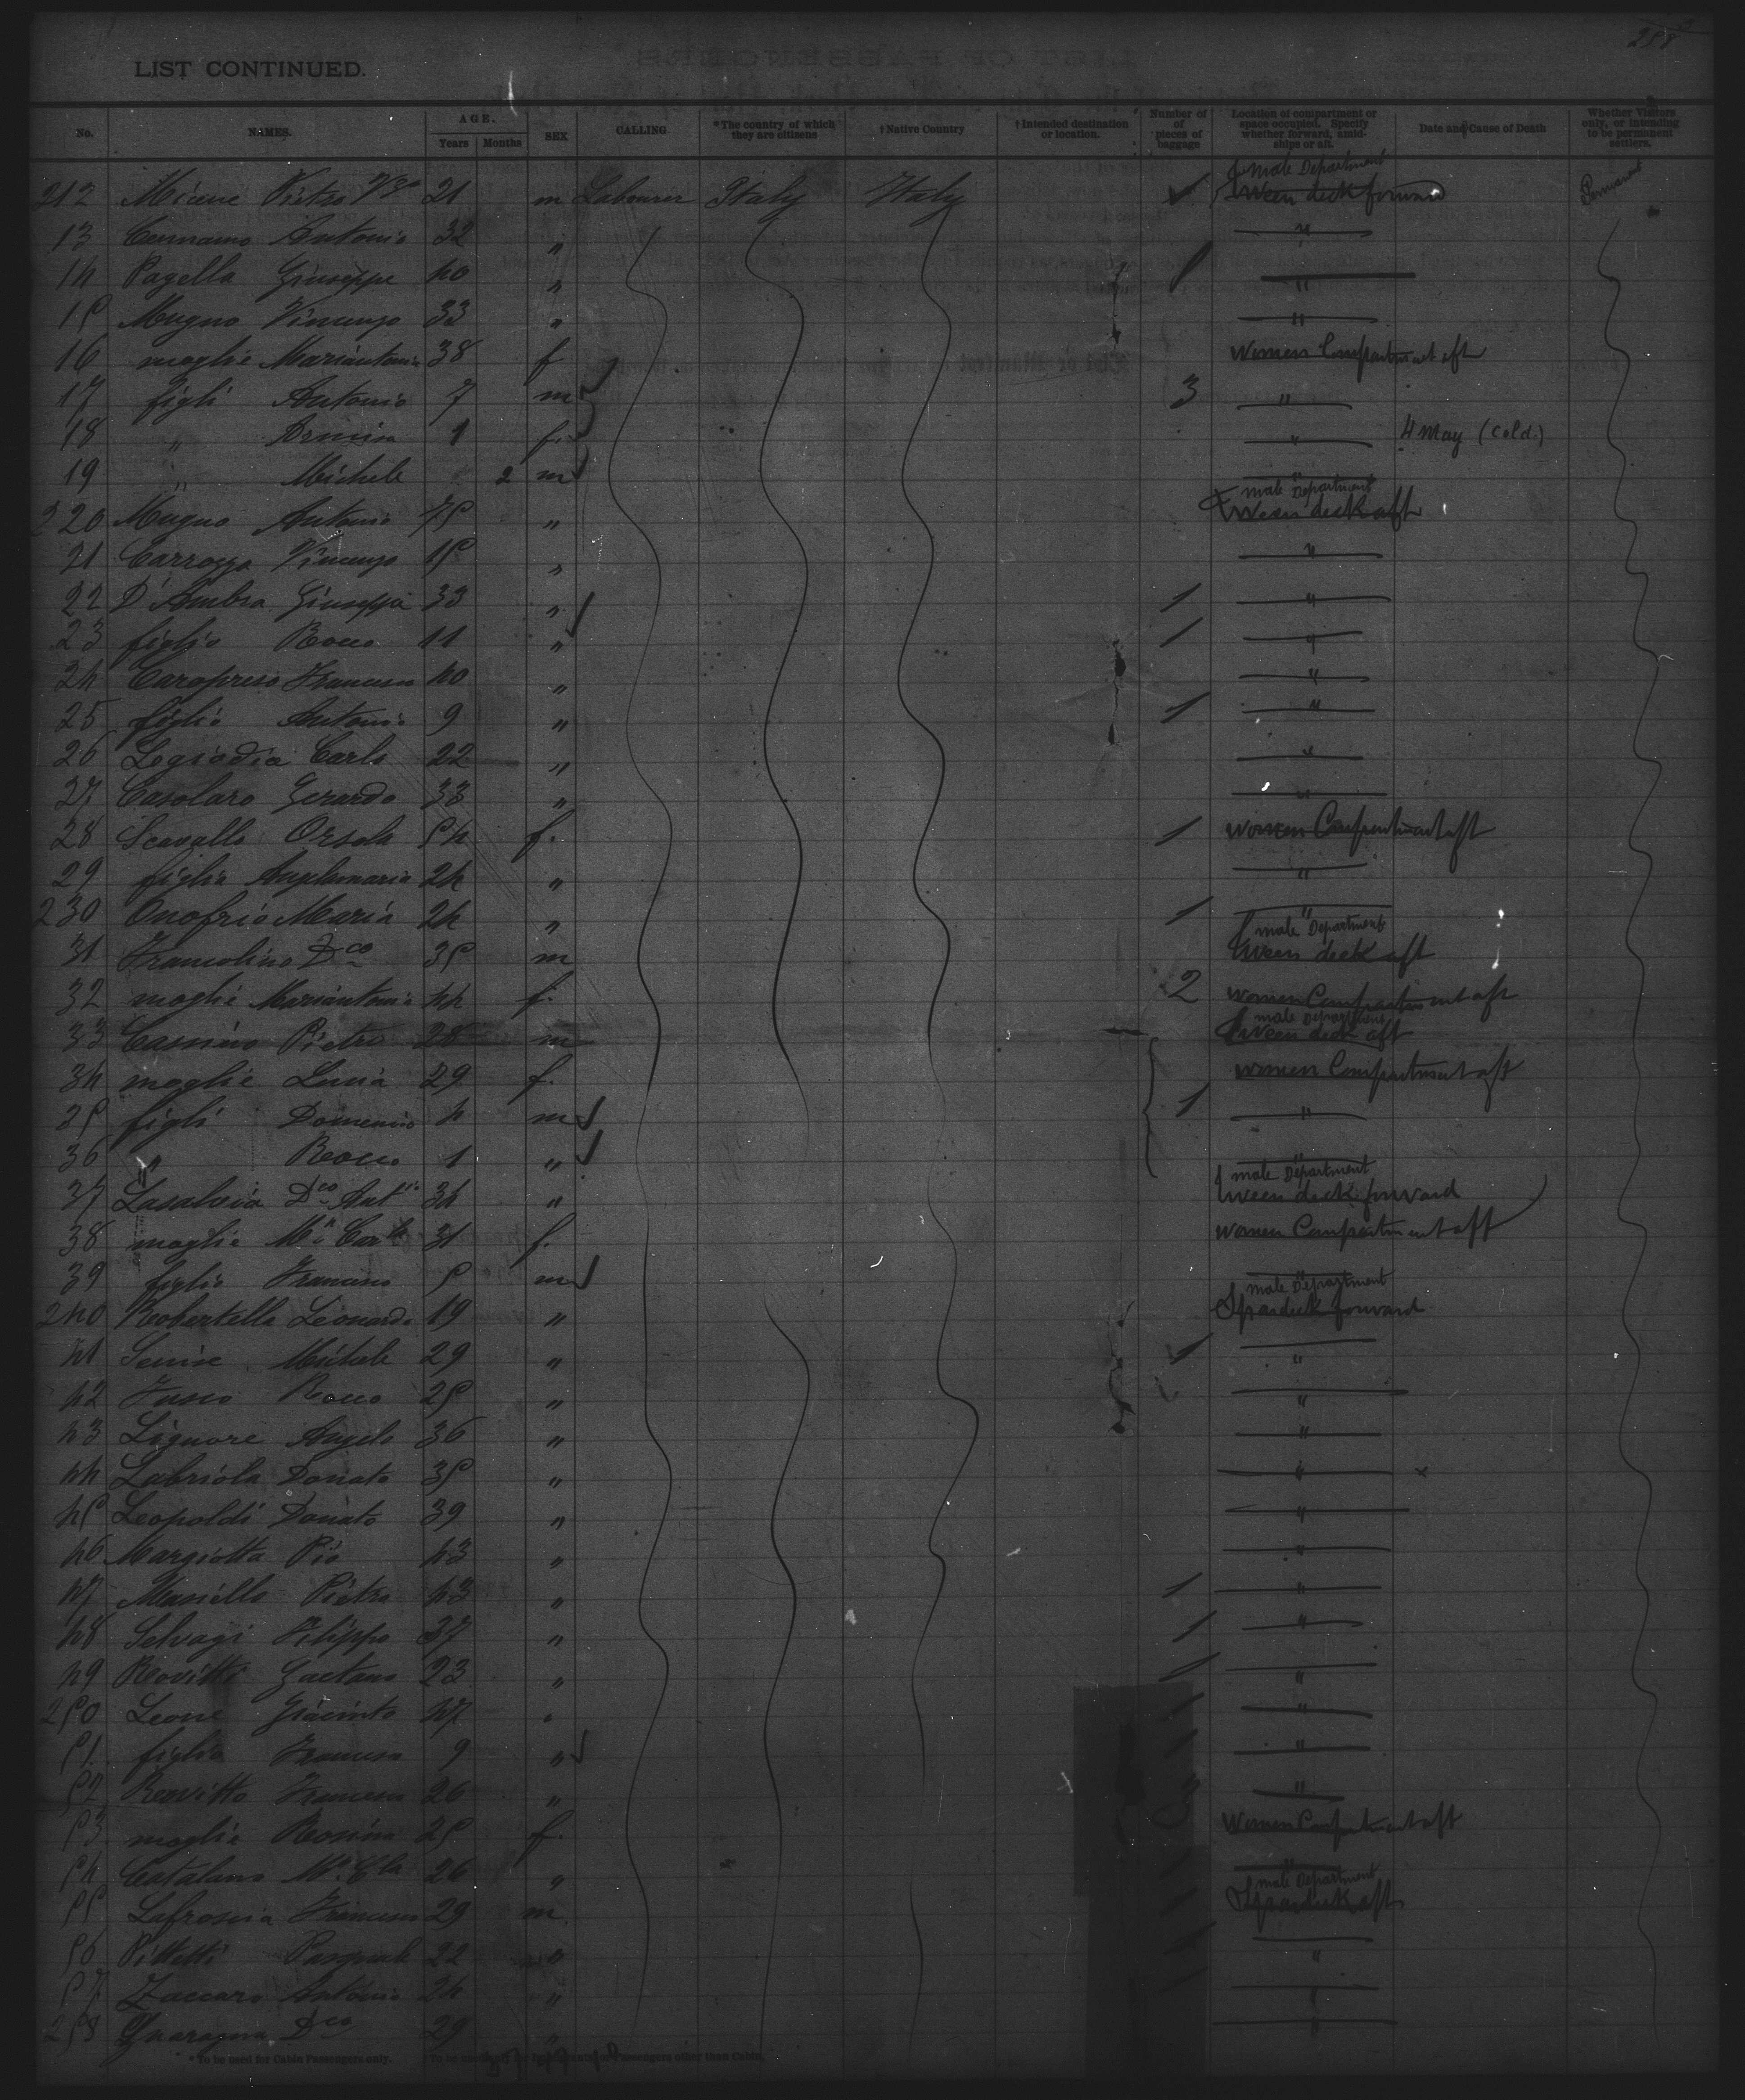 288
LIST CONTINUED.
No. NAMES. AGE. Years Months SEX CALLING *The country of which they are citizens †Native Country †Intended destination or location. Number of pieces of baggage Location of compartment or space occupied. Specify whether forward, amidships or aft. Date and Cause of Death Whether Visitors only, or intending to be permanent settlers.
212 Pietro 21 m Labourer Italy Italy male Department tween deck forward Permanent
13 Antonio 32 " "
14 Pagella Giuseppe 40 " 1 "
15 Mugno Vincenzo 33 " "
16 moglie Mariantonia 38 f Women Compartment aft
17 figli Antonio 7 m 3 "
18 " 1 f. " 4 May (Cold.)
19 " Michele 2 m "
220 Mugno Antonio 75 " male Department tween deck aft
21 Carrozza Vincenzo 15 " "
22 D'Ambra Giuseppe 33 " 1 "
23 figlio Rocco 11 " 1 "
24 Caropreso Francesco 40 " "
25 figlio Antonio 9 " 1 "
26 Carlo 22 " "
27 Casolaro Gerardo 33 " "
28 Scavallo Orsola 54 f. 1 Women Compartment aft
29 figlia Angelamaria 24 " "
230 Onofrio Maria 24 " 1 "
31 Francolino Dco 35 m male Department tween deck aft
32 moglie Mariantonia 44 f. 2 women Compartment aft
33 Cassino Pietro 28 m male Department tween deck aft
34 moglie Lucia 29 f. women Compartment aft
35 figli Domenico 4 m 1 "
36 " Rocco 1 " "
37 Lasalvia Dco Antio 34 " male Department tween deck forward
38 moglie Ma 31 f. women Compartment aft
39 figlio Francesco 5 m "
240 Robertella Leonardo 19 " male Department Spardeck forward
41 Senise Michele 29 " 1 "
42 Fusco Rocco 25 " "
43 Liguore Angelo 36 " "
44 Labriola Donato 35 " "
45 Leopoldi Donato 39 " "
46 Margiotta Pio 43 " "
47 Masiello Pietro 43 " 1 "
48 Selvagi Filippo 37 " 1 "
49 Rovitto Gaetano 23 " 1 "
250 Leone Giacinto 47 " 1 "
51 figlio Francesco 9 " 1 "
52 Rovitto Francesco 26 " "
53 moglie Rosina 25 f. Women Compartment aft
54 Catalano Ma 26 " "
55 Lafroscia Francesco 29 m. male Department Spardeck aft
56 Pasquale 22 " "
57 Zaccaro Antonio 24 " "
258 Guaragna Dco 29 "
*To be used for Cabin Passengers only. Passengers other than Cabin.